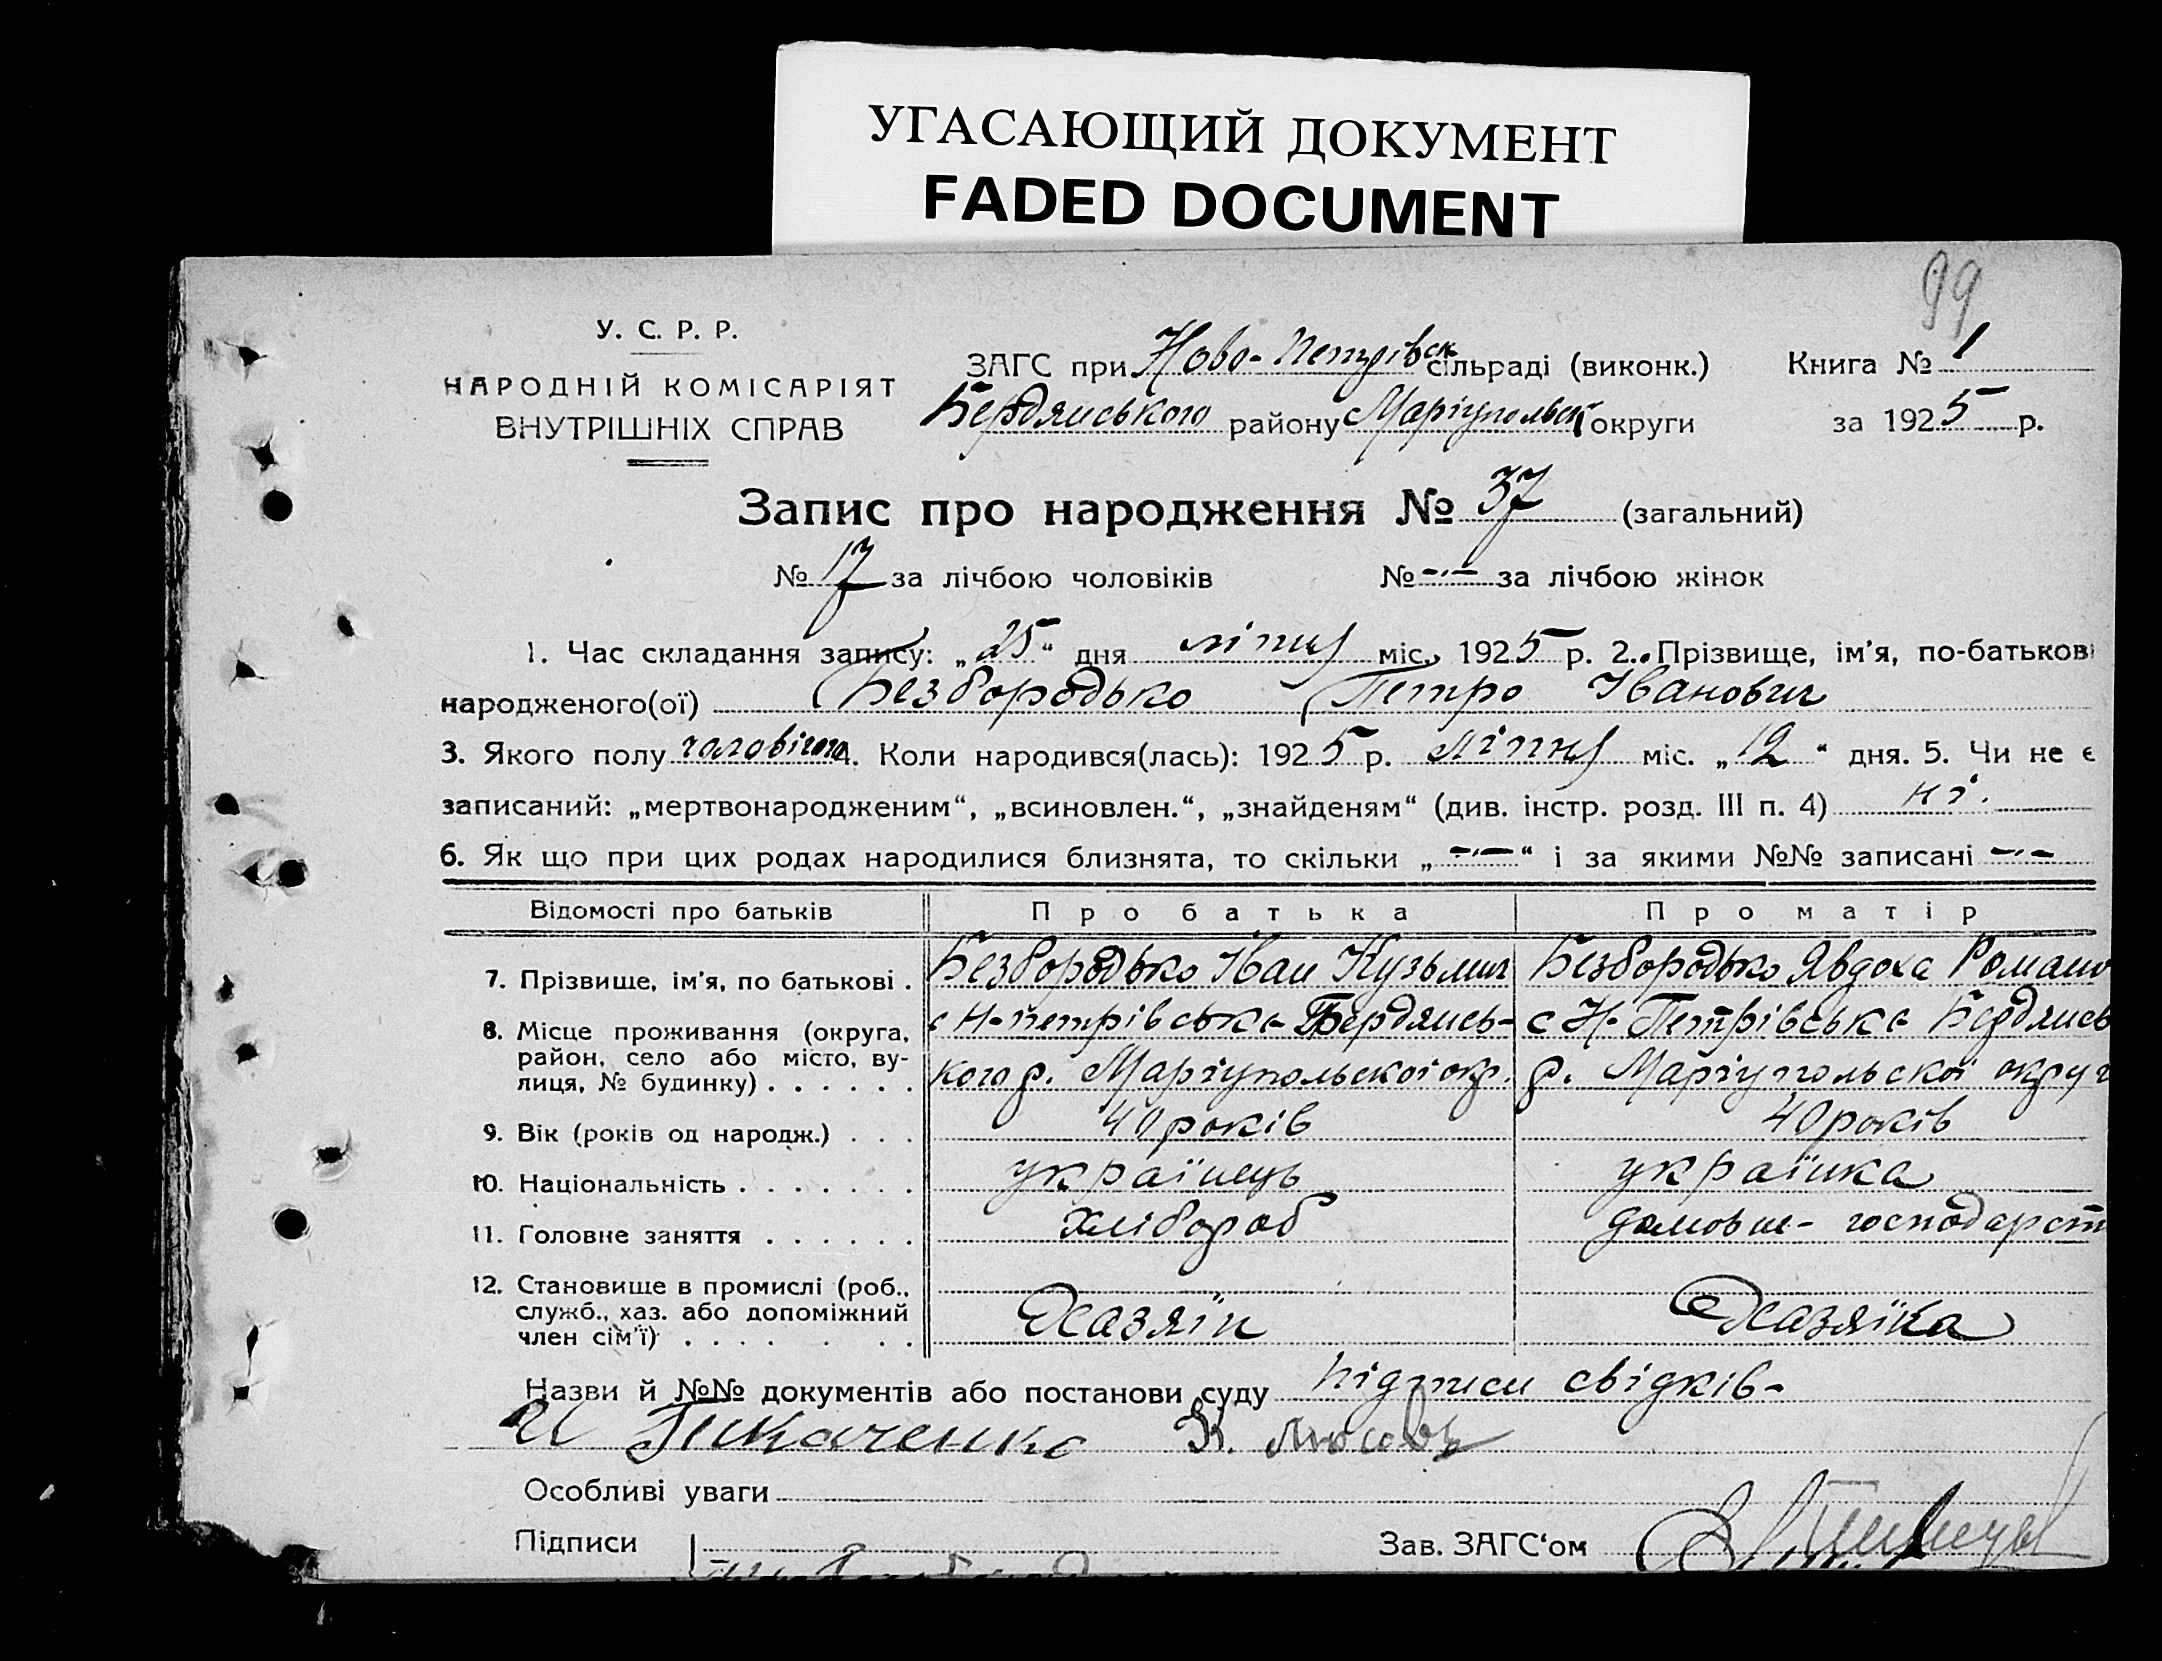 УГАСАЮЩИЙ ДОКУМЕНТ
FADED DOCUMENT
99
У. С. Р. Р.
НАРОДНІЙ КОМІСАРІЯТ
ВНУТРІШНІХ СПРАВ
ЗАГС при Ново-Петрівськ сільраді (виконк.) Книга № 1
Бердянського району Маріупольськ округи за 1925 р.
Запис про народження № 37 (загальний)
№ 17 за лічбою чоловіків № -"- за лічбою жінок
1. Час складання запису: „25“ дня липня міс. 1925 р. 2. Прізвище, ім'я, по-батькові
народженого(ої) Безбородько Петро Іванович
3. Якого полу чоловічого 4. Коли народився(лась): 1925 р. липня міс. „12“ дня. 5. Чи не є
записаний: „мертвонародженим“, „всиновлен.“, „знайденям“ (див. інстр. розд. III п. 4) ні.
6. Як що при цих родах народилися близнята, то скільки „-"-“ і за якими №№ записані -"-
Відомості про батьків Про батька Про матір
7. Прізвище, ім'я, по батькові . Безбородько Іван Кузьмич Безбородько Явдоха Романо
8. Місце проживання (округа, район, село або місто, вулиця, № будинку) . . . . . . с Н-петрівське Бердянського р. Маріупольскої окр. с Н-Петрівське Бердянсь р. Маріупольскої округ
9. Вік (років од народж.) . . . 40 років 40 років
10. Національність . . . . . . . українець українка
11. Головне заняття . . . . . . хлібороб домовш- господарст
12. Становище в промислі (роб., служб., хаз. або допоміжний член сім'ї) . . . . . . . Хазяїн Хазяїка
Назви й №№ документів або постанови суду підписи свідків-
И Ткаченко
Особливі уваги
Підписи Зав. ЗАГС‘ом